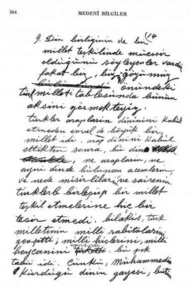 364 MEDENÎ BİLGİLER
9. Din birliğinin de bir
millet teşkilinde müessir
olduğunu söyleyenler vardır.
fakat biz, bizim gözümüz
önündeki
türk milleti tablosunda bunun
aksini görmekteyiz.
türkler arapların dinini kabul
etmeden evvel de büyük bir
millet idi. arap dinini kabul
ettikten sonra, bu din
ne arapların, ne
aynı dinde bulunan acemlerin,
ve nede mısırlıların ve sairenin
türklerle birleşip bir millet
teşkil etmelerine hiç bir
tesir etmedi. bilâkis, türk
milletinin millî rabıtalarını
gevşetti; millî hislerini, millî
heyecanını
Çünkü, Muhammedin
kurduğu dinin gayesi, bütün